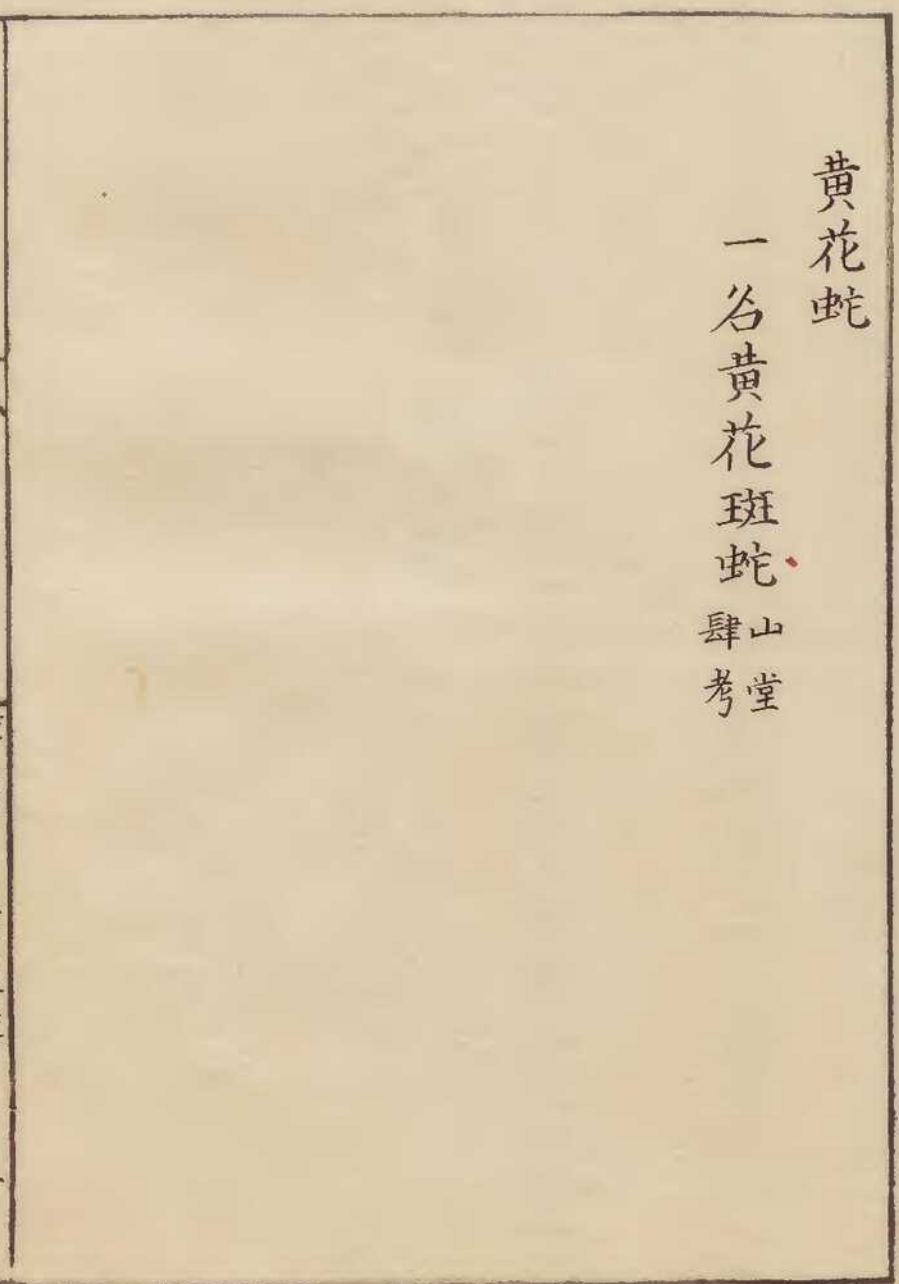 黄花蛇
一名黄花斑蛇山堂肆考